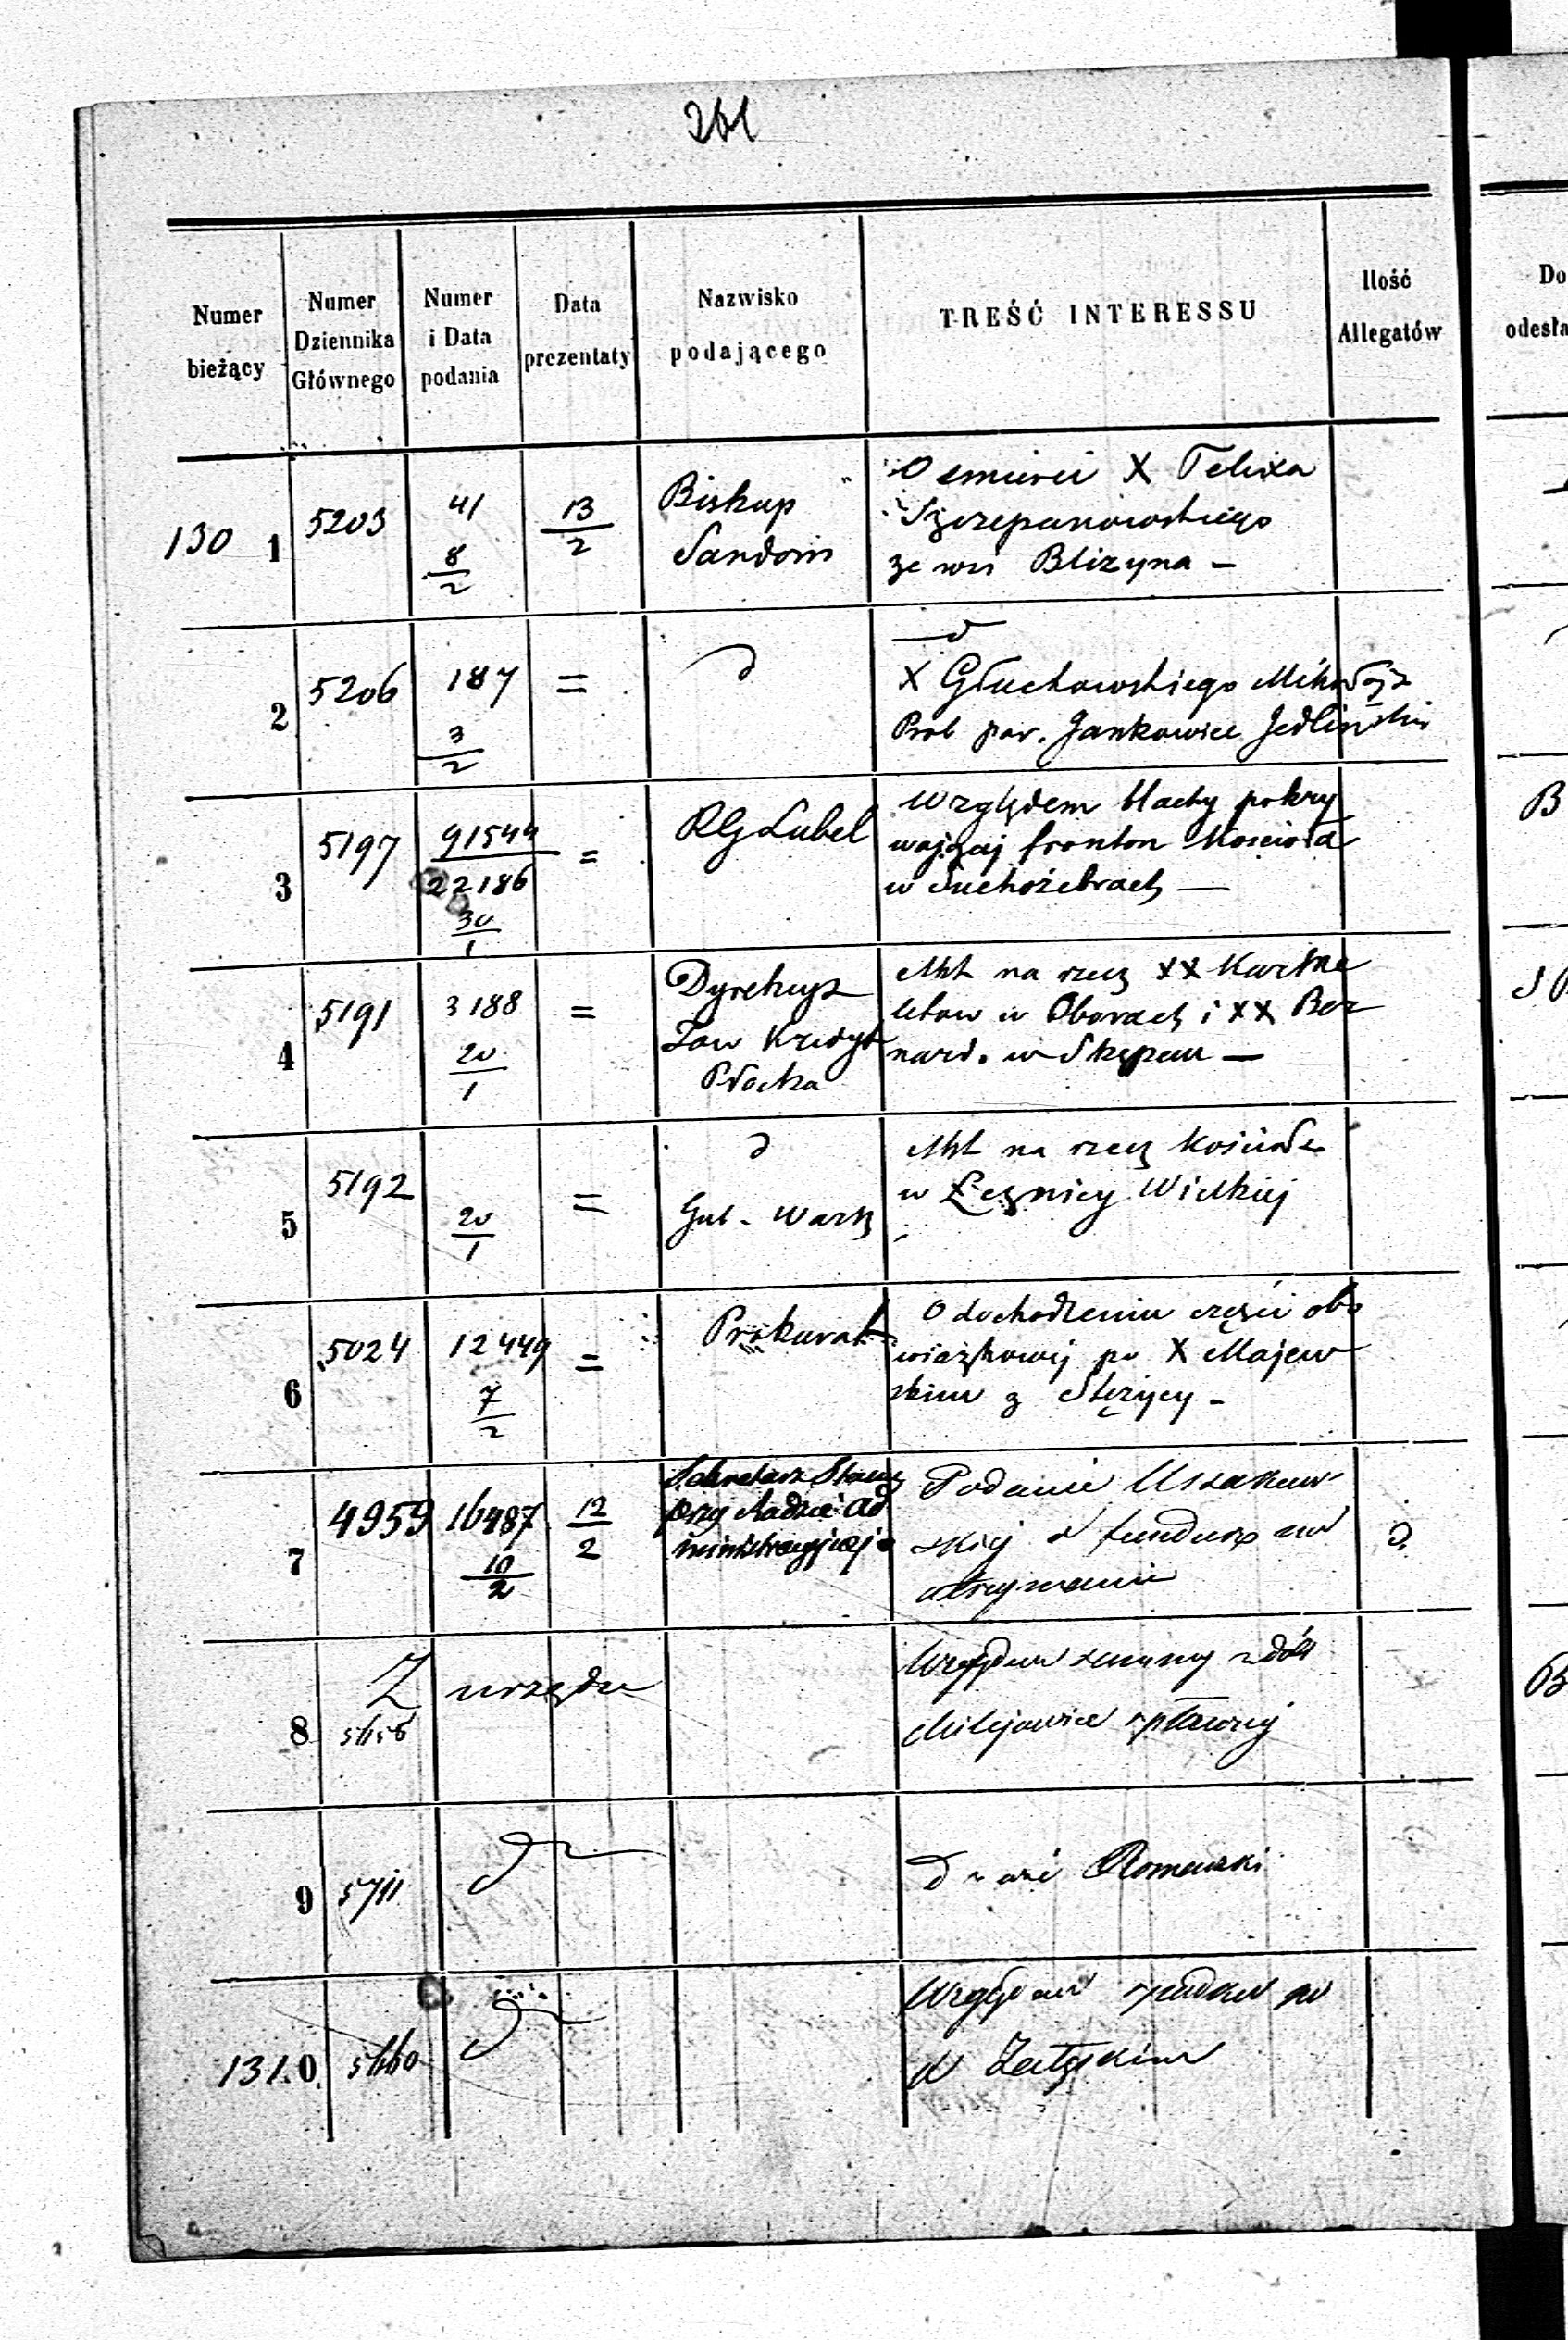 261
Numer bieżący
Numer Dziennika Głównego
Numer i Data podania
Data prezentaty
Nazwisko podającego
TREŚĆ INTERESSU
Ilość Allegatów
Do
odesła
130 1 5203 41 8/2 13/2
Biskup
Sandom
O smierci X Felixa
Szczepanowskiego
ze wsi Blizyna –
2 5206 187 3/2 =
d
d
X Głuchowskiego Mikołaja
Prob par. Jankowice Jedlińskie
3 5197 91544/22186 30/1 =
RG Lubel
Względem blachy pokry
wającej fronton Kościoła
w Suchożebrach —
B
4 5191 3188 20/1 =
Dyrekcya
Tow Kredyt
Płocka
na rzecz XX Karme
litow w Oborach i XX Ber
nard. w Skępem —
5 5192 20/1 =
d
Gub. Warsz
na rzecz Kościoła
w Łęznicy Wielkiej
6 5024 12449 7/2 =
Prokurat
O dochodzeniu części obo
wiązkowej po X Majew
skim z Stężycy –
7 4959 16487 10/2 12/2
Sekretarz Stanu
przy Radzie Ad
ministracyjnej
Podanie
skiej o fundusz na
utrzymanie
2.
8 Z urzędu
5656
Względem summy z dóbr
Milejowice spłaconej
B
9 5711
d
10 5660
131
Względem